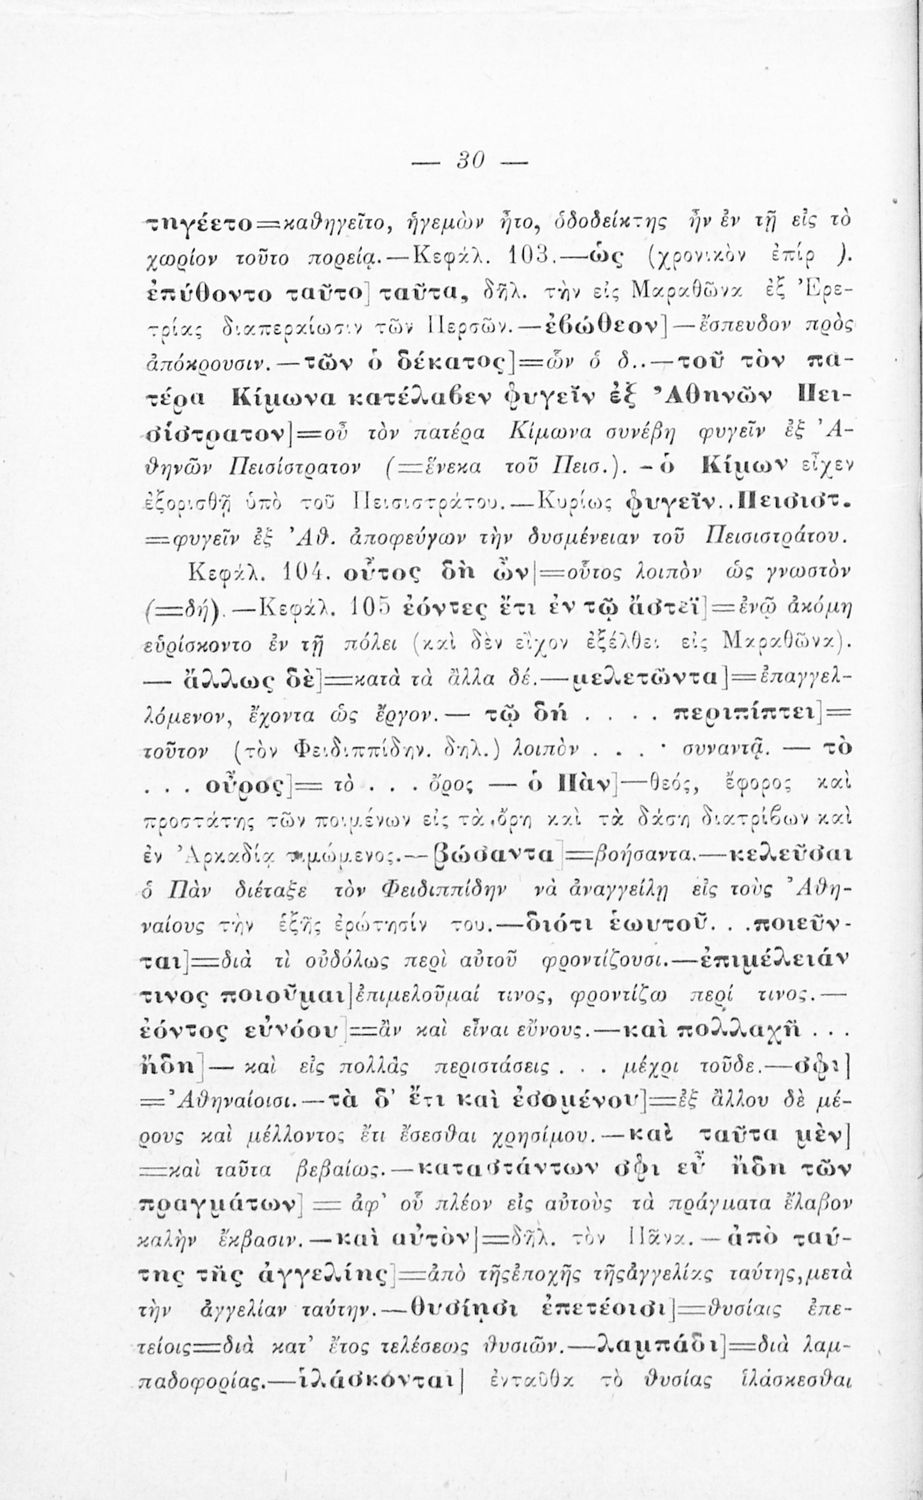 — 30 —
τηγέετο=καθηγεῖτο, ἡγεμὼν ἦτο, ὁδοδείκτης ἦν ἐν τῇ εἰς τὸ
χωρίον τοῦτο πορείᾳ.—Κεφάλ. 103.—ὡς (χρονικὸν ἐπίρ ).
ἐπύθοντο ταῦτο] ταῦτα, δῆλ. τὴν εἰς Μαραθῶνα ἐξ Ἐρε-
τρίας διαπεραίωσιν τῶν Περσῶν.—ἐβώθεον]—ἔσπευδον πρὸς
ἀπόκρουσιν.—τῶν ὁ δέκατος]=ὧν ὁ δ..—τοῦ τὸν πα-
τέρα Κίμωνα κατέλαβεν φυγεῖν ἐξ Ἀθηνῶν Πει-
σίστρατον]=οὗ τὸν πατέρα Κίμωνα συνέβη φυγεῖν ἐξ Ἀ-
θηνῶν Πεισίστρατον (=ἕνεκα τοῦ Πεισ.). -ὁ Κίμων εἶχεν
ἐξορισθῇ ὑπὸ τοῦ Πεισιστράτου.—Κυρίως φυγεῖν..Πεισιστ.
=φυγεῖν ἐξ Ἀθ. ἀποφεύγων τὴν δυσμένειαν τοῦ Πεισιστράτου.
Κεφάλ. 104. οὗτος δὴ ὦν]=οὗτος λοιπὸν ὡς γνωστὸν
(=δή).—Κεφάλ. 105 ἐόντες ἔτι ἐν τῷ ἄστεϊ]=ἐνῷ ἀκόμη
εὑρίσκοντο ἐν τῇ πόλει (καὶ δὲν εἶχον ἐξέλθει εἰς Μαραθῶνα).
— ἄλλως δὲ]=κατὰ τὰ ἄλλα δέ.—μελετῶντα]=ἐπαγγελ-
λόμενον, ἔχοντα ὡς ἔργον.— τῷ δή . . . . περιπίπτει]=
τοῦτον (τὸν Φειδιππίδην. δηλ.) λοιπὸν . . . · συναντᾷ. — τὸ
. . . οὖρος]= τὸ . . . ὄρος — ὁ Πὰν]—θεός, ἔφορος καὶ
προστάτης τῶν ποιμένων εἰς τὰ ὄρη καὶ τὰ δάση διατρίβων καὶ
ἐν Ἀρκαδίᾳ τιμώμενος.—βώσαντα]=βοήσαντα.—κελεῦσαι
ὁ Πὰν διέταξε τὸν Φειδιππίδην νὰ ἀναγγείλῃ εἰς τοὺς Ἀθη-
ναίους τὴν ἑξῆς ἐρώτησίν του.—διότι ἑωυτοῦ. . .ποιεῦν-
ται]=διὰ τὶ οὐδόλως περὶ αὐτοῦ φροντίζουσι.—ἐπιμέλειάν
τινος ποιοῦμαι]ἐπιμελοῦμαί τινος, φροντίζω περί τινος.—
ἐόντος εὐνόου]=ἂν καὶ εἶναι εὔνους.—καὶ πολλαχῆ . . .
ἤδη]— καὶ εἰς πολλὰς περιστάσεις . . . μέχρι τοῦδε.—σφι]
=Ἀθηναίοισι.—τὰ δ' ἔτι καὶ ἐσομένου]=ἐξ ἄλλου δὲ μέ-
ρους καὶ μέλλοντος ἔτι ἔσεσθαι χρησίμου.—καὶ ταῦτα μὲν]
=καὶ ταῦτα βεβαίως.—καταστάντων σφι εὖ ἤδη τῶν
πραγμάτων] = ἀφ' οὗ πλέον εἰς αὐτοὺς τὰ πράγματα ἔλαβον
καλὴν ἔκβασιν.—καὶ αὐτὸν]=δῆλ. τὸν Πᾶνα.—ἀπὸ ταύ-
της τῆς ἀγγελίης]=ἀπὸ τῆςἐποχῆς τῆςἀγγελίας ταύτης,μετὰ
τὴν ἀγγελίαν ταύτην.—θυσίησι ἐπετέοισι]=θυσίαις ἐπε-
τείοις=διὰ κατ' ἔτος τελέσεως θυσιῶν.—λαμπάδι]=διὰ λαμ-
παδοφορίας.—ἱλάσκονται] ἐνταῦθα τὸ θυσίας ἱλάσκεσθαι